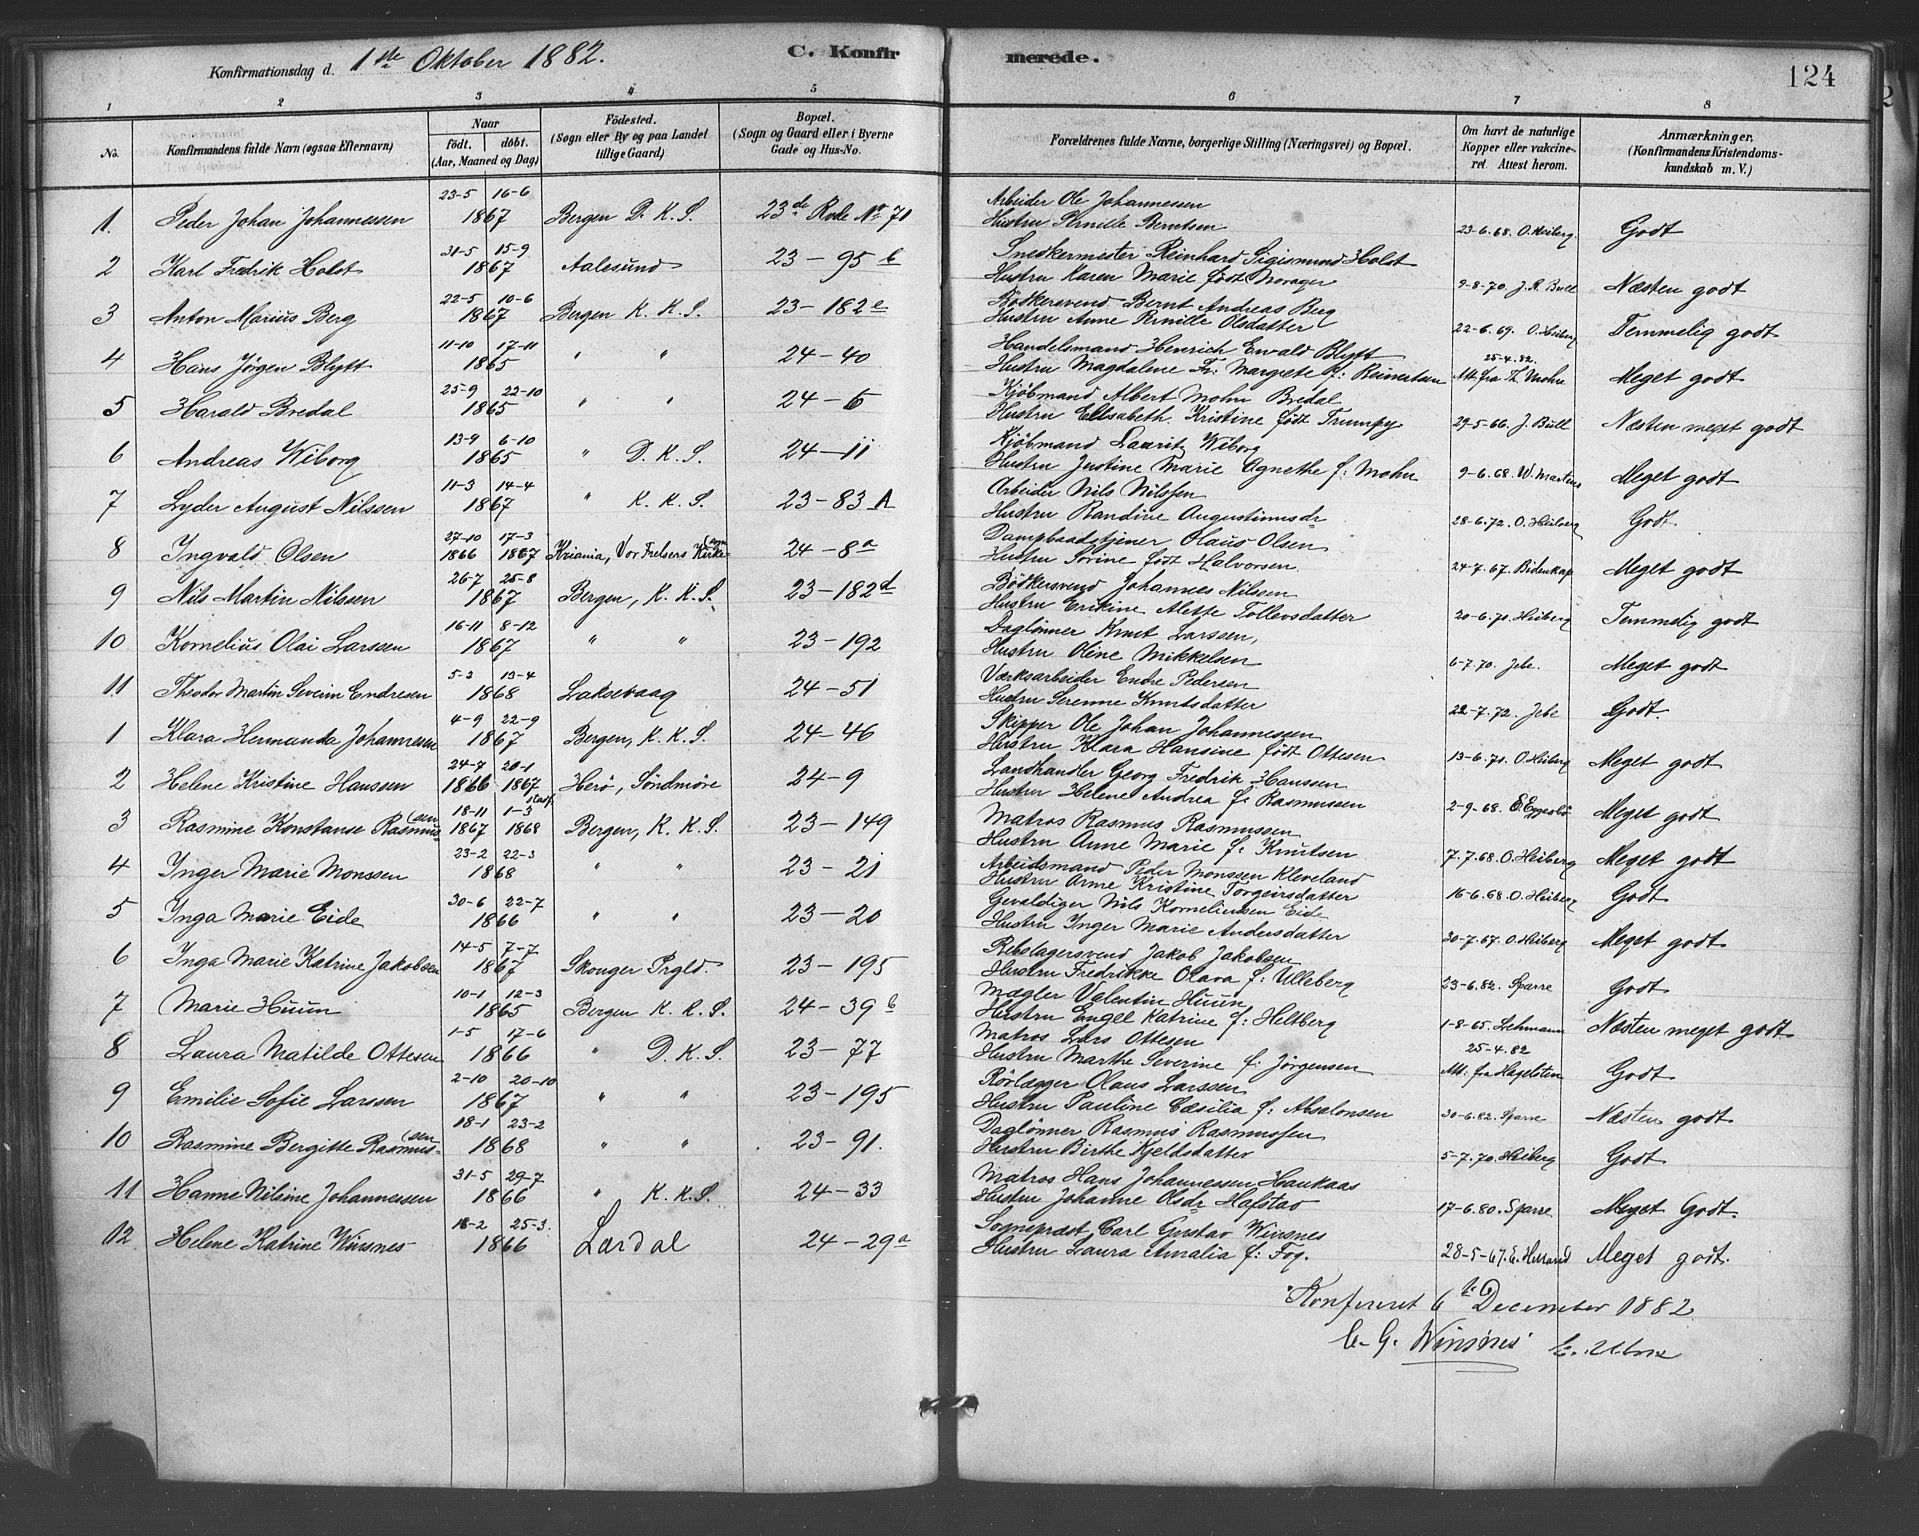 Konfirmationsdag d. 1ste Oktober 1882.
C. Konfirmerede.
124
1 2 3 4 5 6 7 8
No.
Konfirmandens fulde Navn (ogsaa Efternavn)
Naar født. døbt. (Aar, Maaned og Dag)
Fødested. (Sogn eller By og paa Landet tillige Gaard)
Bopæl. (Sogn og Gaard eller i Byerne Gade og Hus-No.
Forældrenes fulde Navne, borgerlige Stilling (Næringsvei) og Bopæl.
Om havt de naturlige Kopper eller vakcineret Attest herom.
Anmærkninger, (Konfirmandens Kristendomskundskab m. V.)
1. Peder Johan Johannessen 23-5 16-6 1867 Bergen D. K. S. 23de Rode No 71 Arbeider Ole Johannessen Hustru Pernille Berntsen 23-6.68. O. Heiberg. Godt
2 Karl Fredrik Holst 31-5 15-9 1867 Aalesund 23-95 b Snedkermester Reinhard Sigismund Holst Hustru Karen Marie født Morager 9-8-70 J. R. Bull Næsten godt
3 Anton Marius Berg 22-5 10-6 1867 Bergen K. K. S. 23-182 e Bødkersvend Bernt Andreas Berg Hustru Anne Pernille Olsdatter 22-6.69. O. Heiberg Temmelig godt
4 Hans Jørgen Blytt 11-10 17-11 1865 " " 24-40 Handelsmand Henrich Ewald Blytt Hustru Magdalene Fr: Margrete f: Reinertsen 25-4.82. Att. fra Meget godt
5 Harald Bredal 25-9 22-10 1865 " " 24-6 Kjøbmand Albert Mohn Bredal Hustru Elisabeth Kristine født Trumpy 29-5-66. J. Bull Næsten meget godt
6 Andreas Wiborg 13-9 6-10 1865 " D. K. S. 24-11 Kjøbmand Lauritz Wiborg Hustru Justine Marie Agnethe f: Mohn 9-6.68. W. Martens Meget godt
7 Lyder August Nilssen 11-3 14-4 1867 " K. K. S. 23-83 A Arbeider Nils Nilssen Hustru Randine Augustinusdr 28-6.72. O. Heiberg Godt
8 Ingvald Olsen 27-10 1866 17-3 1867 Kriania, Vor Frelsers Kirkesogn 24-8 a Dampbaadstjener Olaus Olsen Hustru Sorine født Halvorsen 24-7.67. Bidenkap Meget godt
9 Nils Martin Nilssen 26-7 25-8 1867 Bergen, K. K. S. 23-182 d Bødkersvend Johannes Nilssen Hustru Erikine Alette Tollevsdatter 20-6.70. Heiberg Temmelig godt
10 Kornelius Olai Larssen 16-11 8-12 1867 " " 23-192 Daglønner Knut Larssen, Hustru Oline Mikkelsen 6-7.70. Jebe. Meget godt
11 Theodor Martin Severin Endresen 5-2 13-4 1868 Laksevaag 24-51 Værksarbeider Endre Pedersen Hustru Serenne Knutsdatter 22-7.72. Jebe Godt.
1 Klara Hermanda Johannessen 4-9 22-9 1867 Bergen, K. K. S. 24-46 Skipper Ole Johan Johannessen Hustru Klara Hansine født Ottesen 13-6.71. O. Heiberg Meget godt
2 Helene Kristine Hanssen 24-7 1866 20-1 1867 Herø, Søndmøre 24-9 Landhandler Georg Fredrik Hanssen Hustru Helene Andrea f: Rasmussen 2-9.68. Meget godt
3 Rasmine Konstanse Rasmussen 18-11 1867 1-3 1868 Bergen, K. K. S. 23-149 Matros Rasmus Rasmussen Hustru Anne Marie f: Knutsen 7.7.68. O. Heiberg Meget godt
4 Inger Marie Monssen 23-2 22-3 1868 " " 23-21 Arbeidsmand Peder Monssen Kleveland Hustru Anne Kristine Torgeirsdatter 16-6.68. O. Heiberg Godt
5 Inga Marie Eide 30-6 22-7 1866 " " 23-20 Gevaldiger Nils Korneliussen Eide Hustru Inger Marie Andersdatter 30-7.67. O. Heiberg Meget godt
6 Inga Marie Katrine Jakobsen 14-5 7-7 1867 Skouger Prgld. 23-195 Rebslagersvend Jakob Jakobsen Hustru Fredrikke Olava f: Ulleberg 23-6.82. Sparre Godt
7 Marie Huun 10-1 12-3 1865 Bergen K. K. S. 24-39 b Mægler Valentin Huun Hustru Engel Katrine f: Heltberg 1-8.65. Lehmann Næsten meget godt
8 Laura Matilde Ottesen 1-5 17-6 1866 " D. K. S. 23-77 Matros Lars Ottesen Hustru Marthe Severine f: Jørgensen 25-4.82 Att. fra Hagelsten Godt
9 Emilie Sofie Larssen 2-10 20-10 1867 " " 23-195 Rørlægger Olaus Larssen Hustru Pauline Cæsilia f: Absalonsen 30-6.82. Sparre Næsten godt
10 Rasmine Bergitte Rasmussen 18-1 23-2 1868 " " 23-91. Daglønner Rasmus Rasmussen Hustru Birthe Kjeldsdatter 5-7.70. Heiberg Godt
11 Hanne Nilsine Johannessen 31-5 29-7 1866 " K. K. S. 24-33 Matros Hans Johannessen Haukaas Hustru Johanne Olsdr Hafstad 17-6.80. Sparre Meget Godt.
12 Helene Katrine Winsnes 18-2 25-3. 1866 Lærdal 24-29 a Sognepræst Carl Gustav Winsnes Hustru Laura Amalia f: Fog. 28-5-67. Meget godt.
Konfereret 6te December 1882
C. G. Winsnes